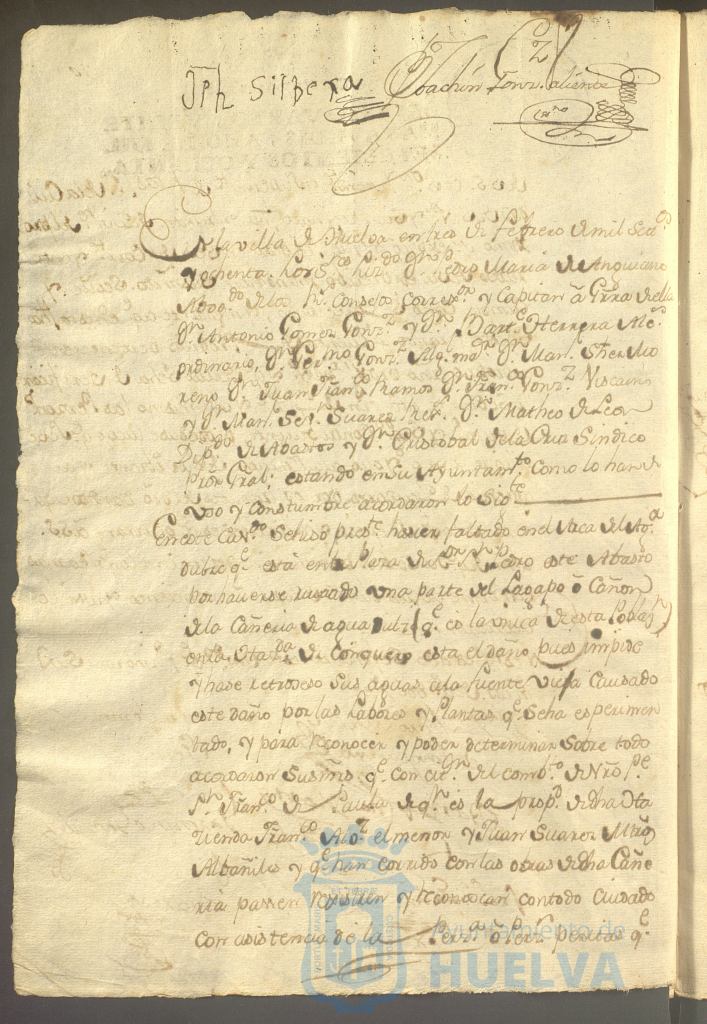 Jph Silbera Joachin Gonz. aliente
En la villa de Huelva en tres de Febrero de mil Setos
y ochenta. Los Sres Lizdo Dn Pedro Maria de Anguiano
Abogdo de los Rs Consejos Correxor y Capitan à Grra de ella
Dn Antonio Gomez Gonzz y Dn Barte Herrera Ales
ordinarios, Dn Germo Gonzz Algl mor Dn Man. Mo
reno Dn Juan Franco Ramos Dn Franco Gonzz Viscaino
y Dn Man. Suarez Rexs Dn Matheo de Leon
Dipdo de Abastos y Dn Cristobal de la Cueva Sindico
Pror Gral; estando en su Ayuntamto como lo han de
Uso y Constumbre acordaron lo Sigte
En este Cavo Se hiso preste haver faltado en el Arca del Agua
dulce qe está en la Plaza de Sor Sn Pedro este Abasto
por haverse una parte del Lagapo ô Cañon
de la Cañeria de agua dulze qe es la unica de esta Poblasn
en la Hta de Conquero esta el daño pues impide
y hase retroseso Sus aguas a la fuente vieja Causado
este daño por las Labores y Plantas qe Se ha esperimen
tado, y para reconocer y poder determinar Sobre todo
acordaron Susms qe con del combto de Nro Pe
Sn Franco de Paula de qn es la propd de dha Hta
Franco Aloz el menor y Juan Suarez Mtros
Albañiles y qe han corrido con las obras de dha Cañe
ria passen rexistren y reconoscan con todo Cuidado
Con asistencia de la Perza ô Perzs peritas qe
Ayuntamiento de
HUELVA